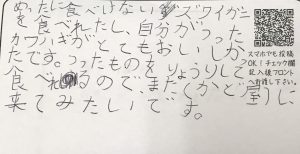 めったに食べけないズワイガニ
を食べれたし、自分がつった
カワハギがとてもおいしかった
です。つったものをりょうりして
食べれるので、またくかど屋りに
来てみたいです。
スマホでも投稿
OK!チェック欄
記入後フロント
へお渡し下さい。